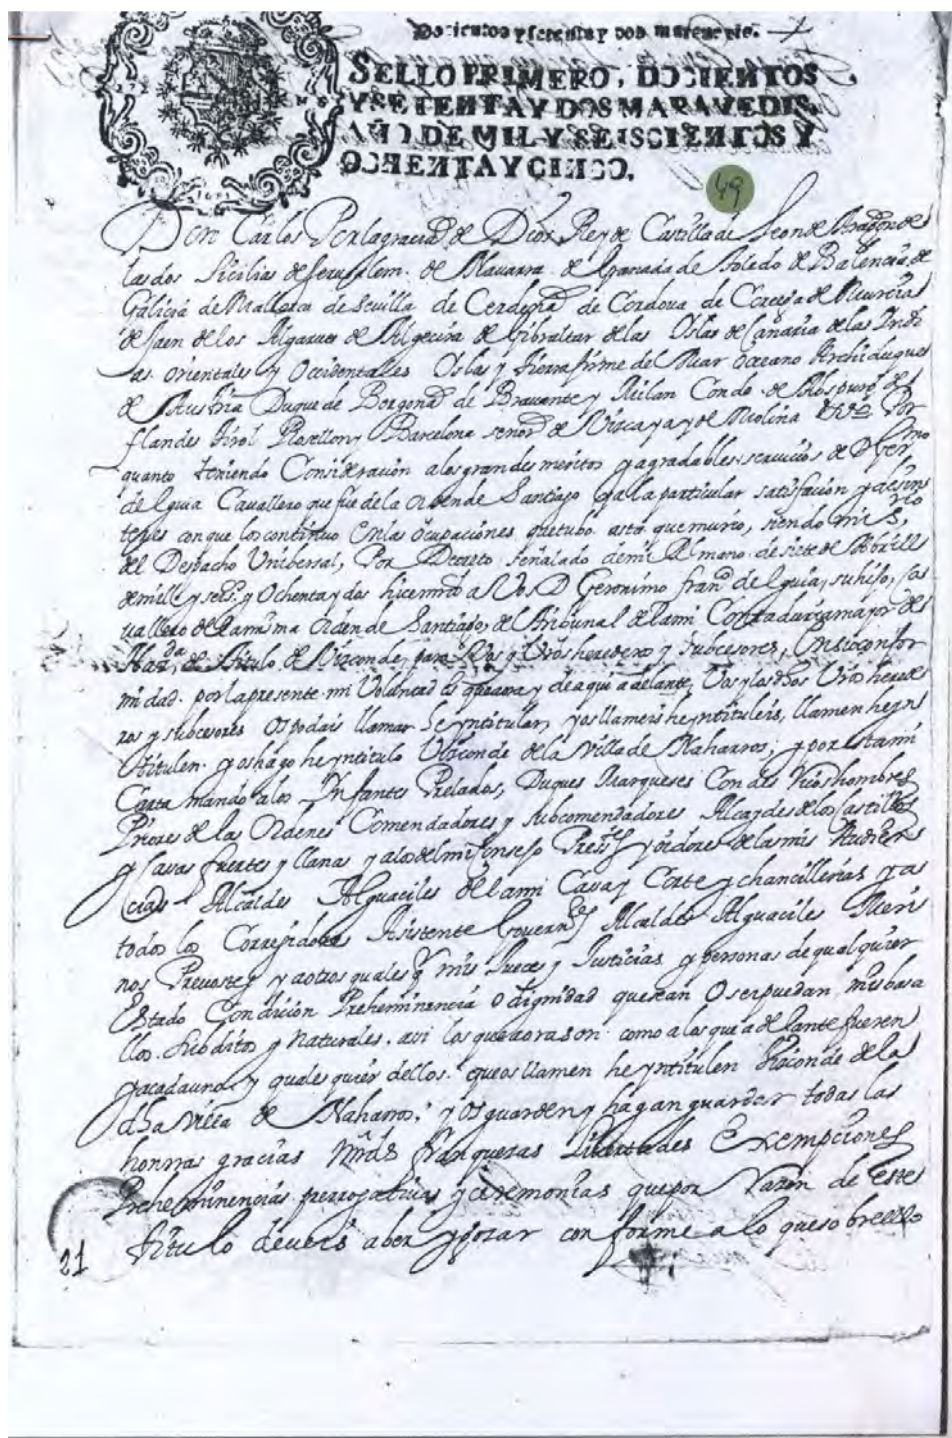 Docientos y setenta y dos maravedis.
SELLO PRIMERO, DOCIENTOS
Y SETENTA Y DOS MARAVEDIS,
AÑO DE MIL Y SEISCIENTOS Y
OCHENTA Y CINCO.
49
Don Carlos Por la gracia de Dios Rey de Castilla de Leon de Aragon de
las dos Sicilias de Jerusalem de Navarra de Granada de Toledo de Balencia de
Galicia de Mallorca de Sevilla de Cerdeña de Cordova de Corcega de Murcia
de Jaen de los Algarves de Algecira de Gibraltar de las Islas de Canaria de las Indi
as orientales y Occidentales Islas y tierra firme del Mar Oceano Archiduque
de Austria Duque de Borgoña de Bravante y Milan Conde de Abspurg de
flandes tirol Rosellon y Barcelona señor de Vizcaya y de Molina Por
quanto teniendo Consideración a los grandes meritos y agradables servicios de D. Germo
de Eguia Cavallero que fue de la orden de Santiago y a la particular satisfacion y desin
teres con que los continuo en las ocupaciones que tubo asta que murio, siendo mi Srio
del Despacho Unibersal, Por Decreto señalado de mi Rl mano de siete de Abrill
de mill y seiss. y Ochenta y dos hice mrd a Vos D Geronimo franco de Eguia, su hijo, Ca
vallero de la misma Orden de Santiago, del tribunal de la mi Contaduria mayor de
Hazda, de titulo de Vizconde, para Vos y Vros herederos y Subcesores, En su confor
midad. por la presente mi Voluntad es que aora y de aqui adelante, Vos y los dhos Vros herede
ros y subcesores os podais llamar he yntitular, y os llameis he yntituleis, llamen he yn
titulen. y os hago he yntitulo Vizconde de la Villa de Naharros; y por esta mi
Carta mando a los Infantes Prelados, Duques Marqueses Condes Ricos hombres
Priores de las Ordenes Comendadores y Subcomendadores Alcaydes de los Castillos
y Casas fuertes y llanas y a los del mi Consejo Presstes y oidores de las mis Audien
cias Alcaldes Alguaciles de la mi Casa y Corte y chancillerias y a
todos los Corregidores Asistente Governes Alcaldes Alguaciles Meri
nos Prevostes y a otros quales q mis Jueces y Justicias y personas de qualquier
Estado Condicion Preheminencia o dignidad que sean O ser puedan mis basa
llos. Subditos y Naturales. asi los que aora son como a los que adelante fueren
y a cada uno y quales quier dellos. que os llamen he yntitulen Vizconde de la
dha Villa de Naharros; y os guarden y hagan guardar todas las
honrras gracias Mrds franquezas Libertades Exempciones
Preheminencias prerrogativas y ceremonias que por razon de Este
titulo deveis aber y gozar conforme a lo que sobre ello
21